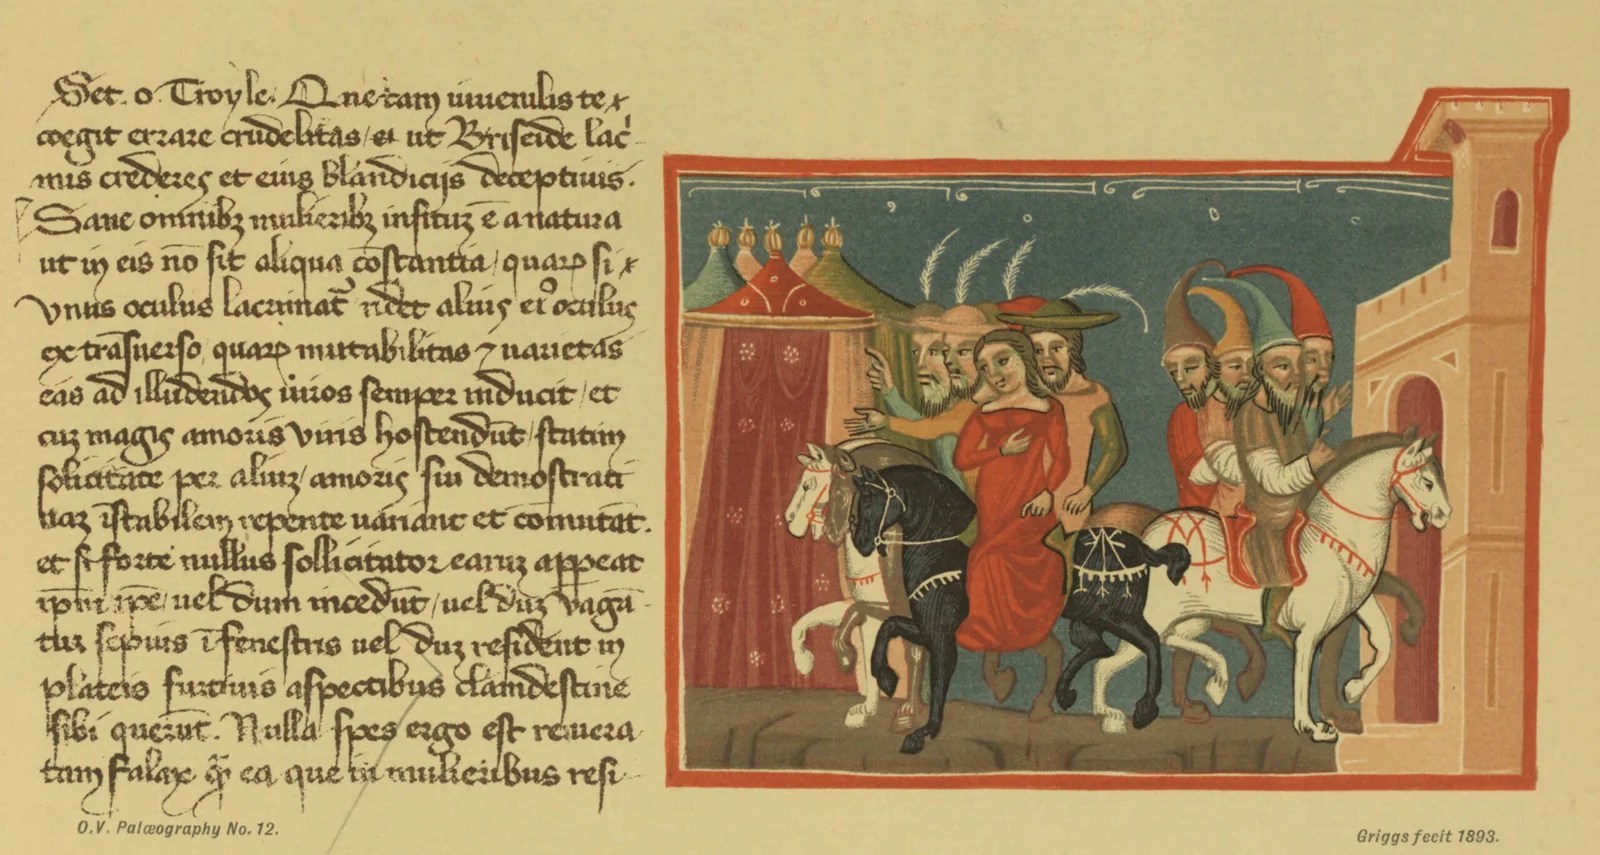 Set. o. Troyle. Que tam iuuenilis te
coegit errare crudelitas / et ut Briseide lac̄
mis crederes et eius blandicijs deceptiuis.
Sane omnibꝫ mulieribꝫ insituꝫ ē a natura
ut in eis nō sit aliqua cōstantia / quaꝝ si
vnus oculus lacrimat᷑ ridet alius oculus
ex trāsuerso, quaꝝ mutabilitas ⁊ uarietas
eas ad illudendos uiros semper inducit / et
cuꝫ magis amoris viris hostendūt / statim
solicitate per aliuꝫ / amoris sui demostrati
uaꝫ īstabilem repente uariant et comutāt.
et si forte nullus sollicitator earuꝫ appeat
ip̄m ip̄e / uel dum incedūt / uel duꝫ vagā
tur sepius ī fenestris uel duꝫ resident in
plateis furtiuis aspectibus clamdestine
sibi querūt. Nulla spes ergo est reuera
tam falax q̄ ea que in mulieribus resi
O.V. Palæography No. 12.
Griggs fecit 1893.